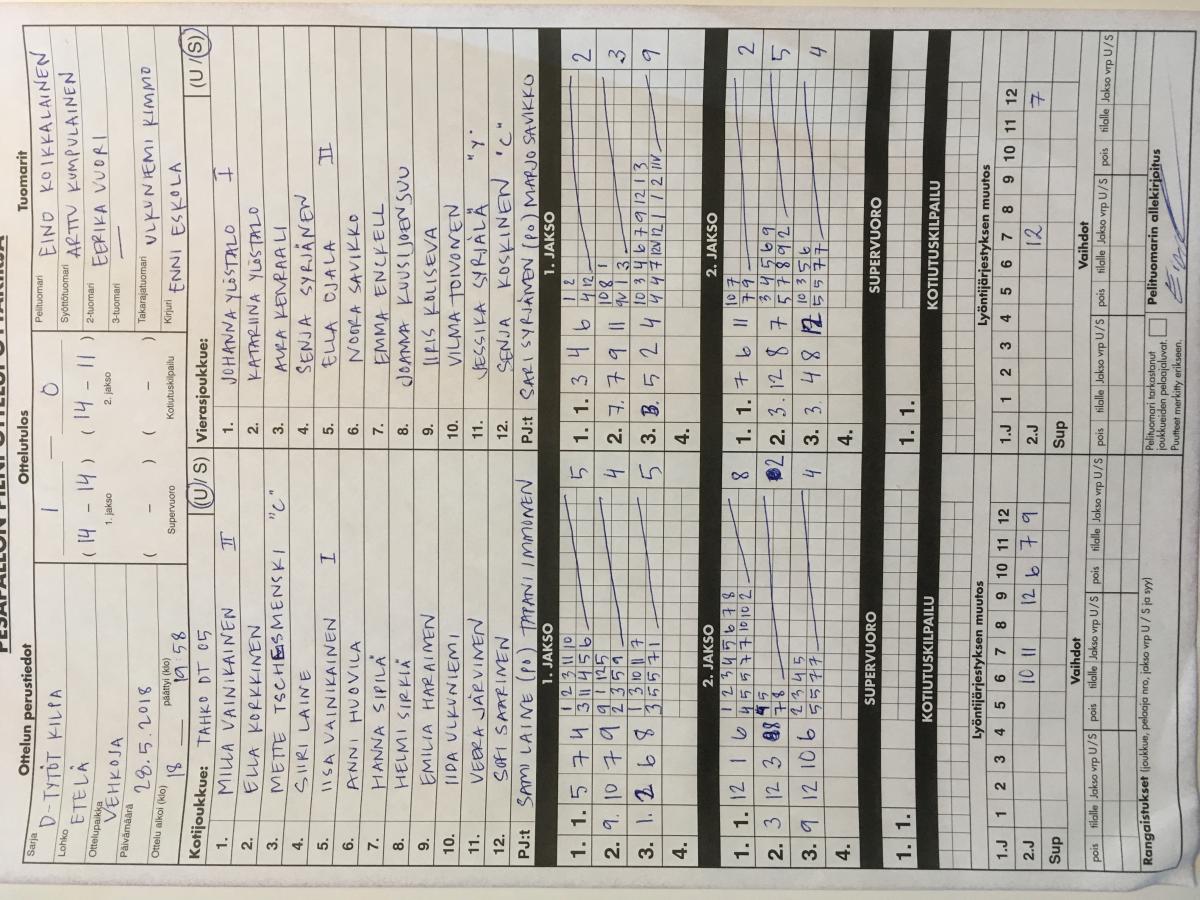 PESÄPALLON PIENI OTTELUPÖYTÄKIRJA
Ottelun perustiedot
Sarja D-TYTÖT KILPA
Lohko ETELÄ
Ottelupaikka VEHKOJA
Päivämäärä 28.5.2018
Ottelu alkoi (klo) 18 päättyi (klo) 19:58
Ottelutulos
1 — 0
(14 - 14) (14 - 11)
1. jakso 2. jakso
( - ) ( - )
Supervuoro Kotiutuskilpailu
Tuomarit
Pelituomari EINO KOIKKALAINEN
Syöttötuomari ARTTU KUMPULAINEN
2-tuomari EERIKA VUORI
3-tuomari —
Takarajatuomari ULKUNIEMI KIMMO
Kirjuri ENNI ESKOLA
Kotijoukkue: TAHKO DT 05 (U/S)
1. MILLA VAINIKAINEN II
2. ELLA KORKKINEN
3. METTE TSCHESMENSKI "C"
4. SIIRI LAINE
5. IISA VAINIKAINEN I
6. ANNI HUOVILA
7. HANNA SIPILÄ
8. HELMI SIRKIÄ
9. EMILIA HARAINEN
10. IIDA ULKUNIEMI
11. VEERA JÄRVINEN
12. SOFI SAARINEN
PJ:t SAMI LAINE (PO) TAPANI IMMONEN
Vierasjoukkue: (U/S)
1. JOHANNA YLÖSTALO I
2. KATARIINA YLÖSTALO
3. AURA KENRAALI
4. SENJA SYRJÄNEN
5. ELLA OJALA II
6. NOORA SAVIKKO
7. EMMA ENCKELL
8. JOANNA KUUSIJOENSUU
9. IIRIS KOLISEVA
10. VILMA TOIVONEN
11. JESSIKA SYRJÄLÄ "Y"
12. SENJA KOSKINEN "C"
PJ:t SARI SYRJÄNEN (PO) MARJO SAVIKKO
1. JAKSO
1. 1. 5 7 4
1 2 3 11 10
3 11 4 5 6
5
2. 9. 10 7 9
9 1 12 5
2 3 5 9
4
3. 1. 2 6 8
1 3 10 11 7
3 5 5 7 1
5
4.
1. JAKSO
1. 1. 3 4 6
1 2
4 12
2
2. 7. 7 9 11
10 8 1
3
3. 5 2 4
10 3 4 6 7 9 12 1 3
9
4.
2. JAKSO
1. 1. 12 1 6
1 2 3 4 5 6 7 8
4 5 5 7 7 10 10 2
8
2. 3 12 3
7 8
2
3. 9 12 10 6
2 3 4 5
5 5 7 7
4
4.
2. JAKSO
1. 1. 7 6 11
10 7
7 9
2
2. 3. 12 8 7
3 4 5 6 9
5 7 8 9 2
5
3. 3. 4 8 12
10 3 5 6
5 5 7 7
4
4.
SUPERVUORO
1. 1.
SUPERVUORO
1. 1.
KOTIUTUSKILPAILU
KOTIUTUSKILPAILU
Lyöntijärjestyksen muutos
1.J 1 2 3 4 5 6 7 8 9 10 11 12
2.J 10 11 12 6 7 9
Sup
Lyöntijärjestyksen muutos
1.J 1 2 3 4 5 6 7 8 9 10 11 12
2.J 12 7
Sup
Vaihdot
pois tilalle Jakso vrp U/S pois tilalle Jakso vrp U/S pois tilalle Jakso vrp U/S
Vaihdot
pois tilalle Jakso vrp U/S pois tilalle Jakso vrp U/S pois tilalle Jakso vrp U/S
Rangaistukset (joukkue, pelaaja nro, jakso vrp U/S ja syy)
Pelituomari tarkastanut
joukkueiden pelaajaluvat.
Puutteet merkitty erikseen.
Pelituomarin allekirjoitus